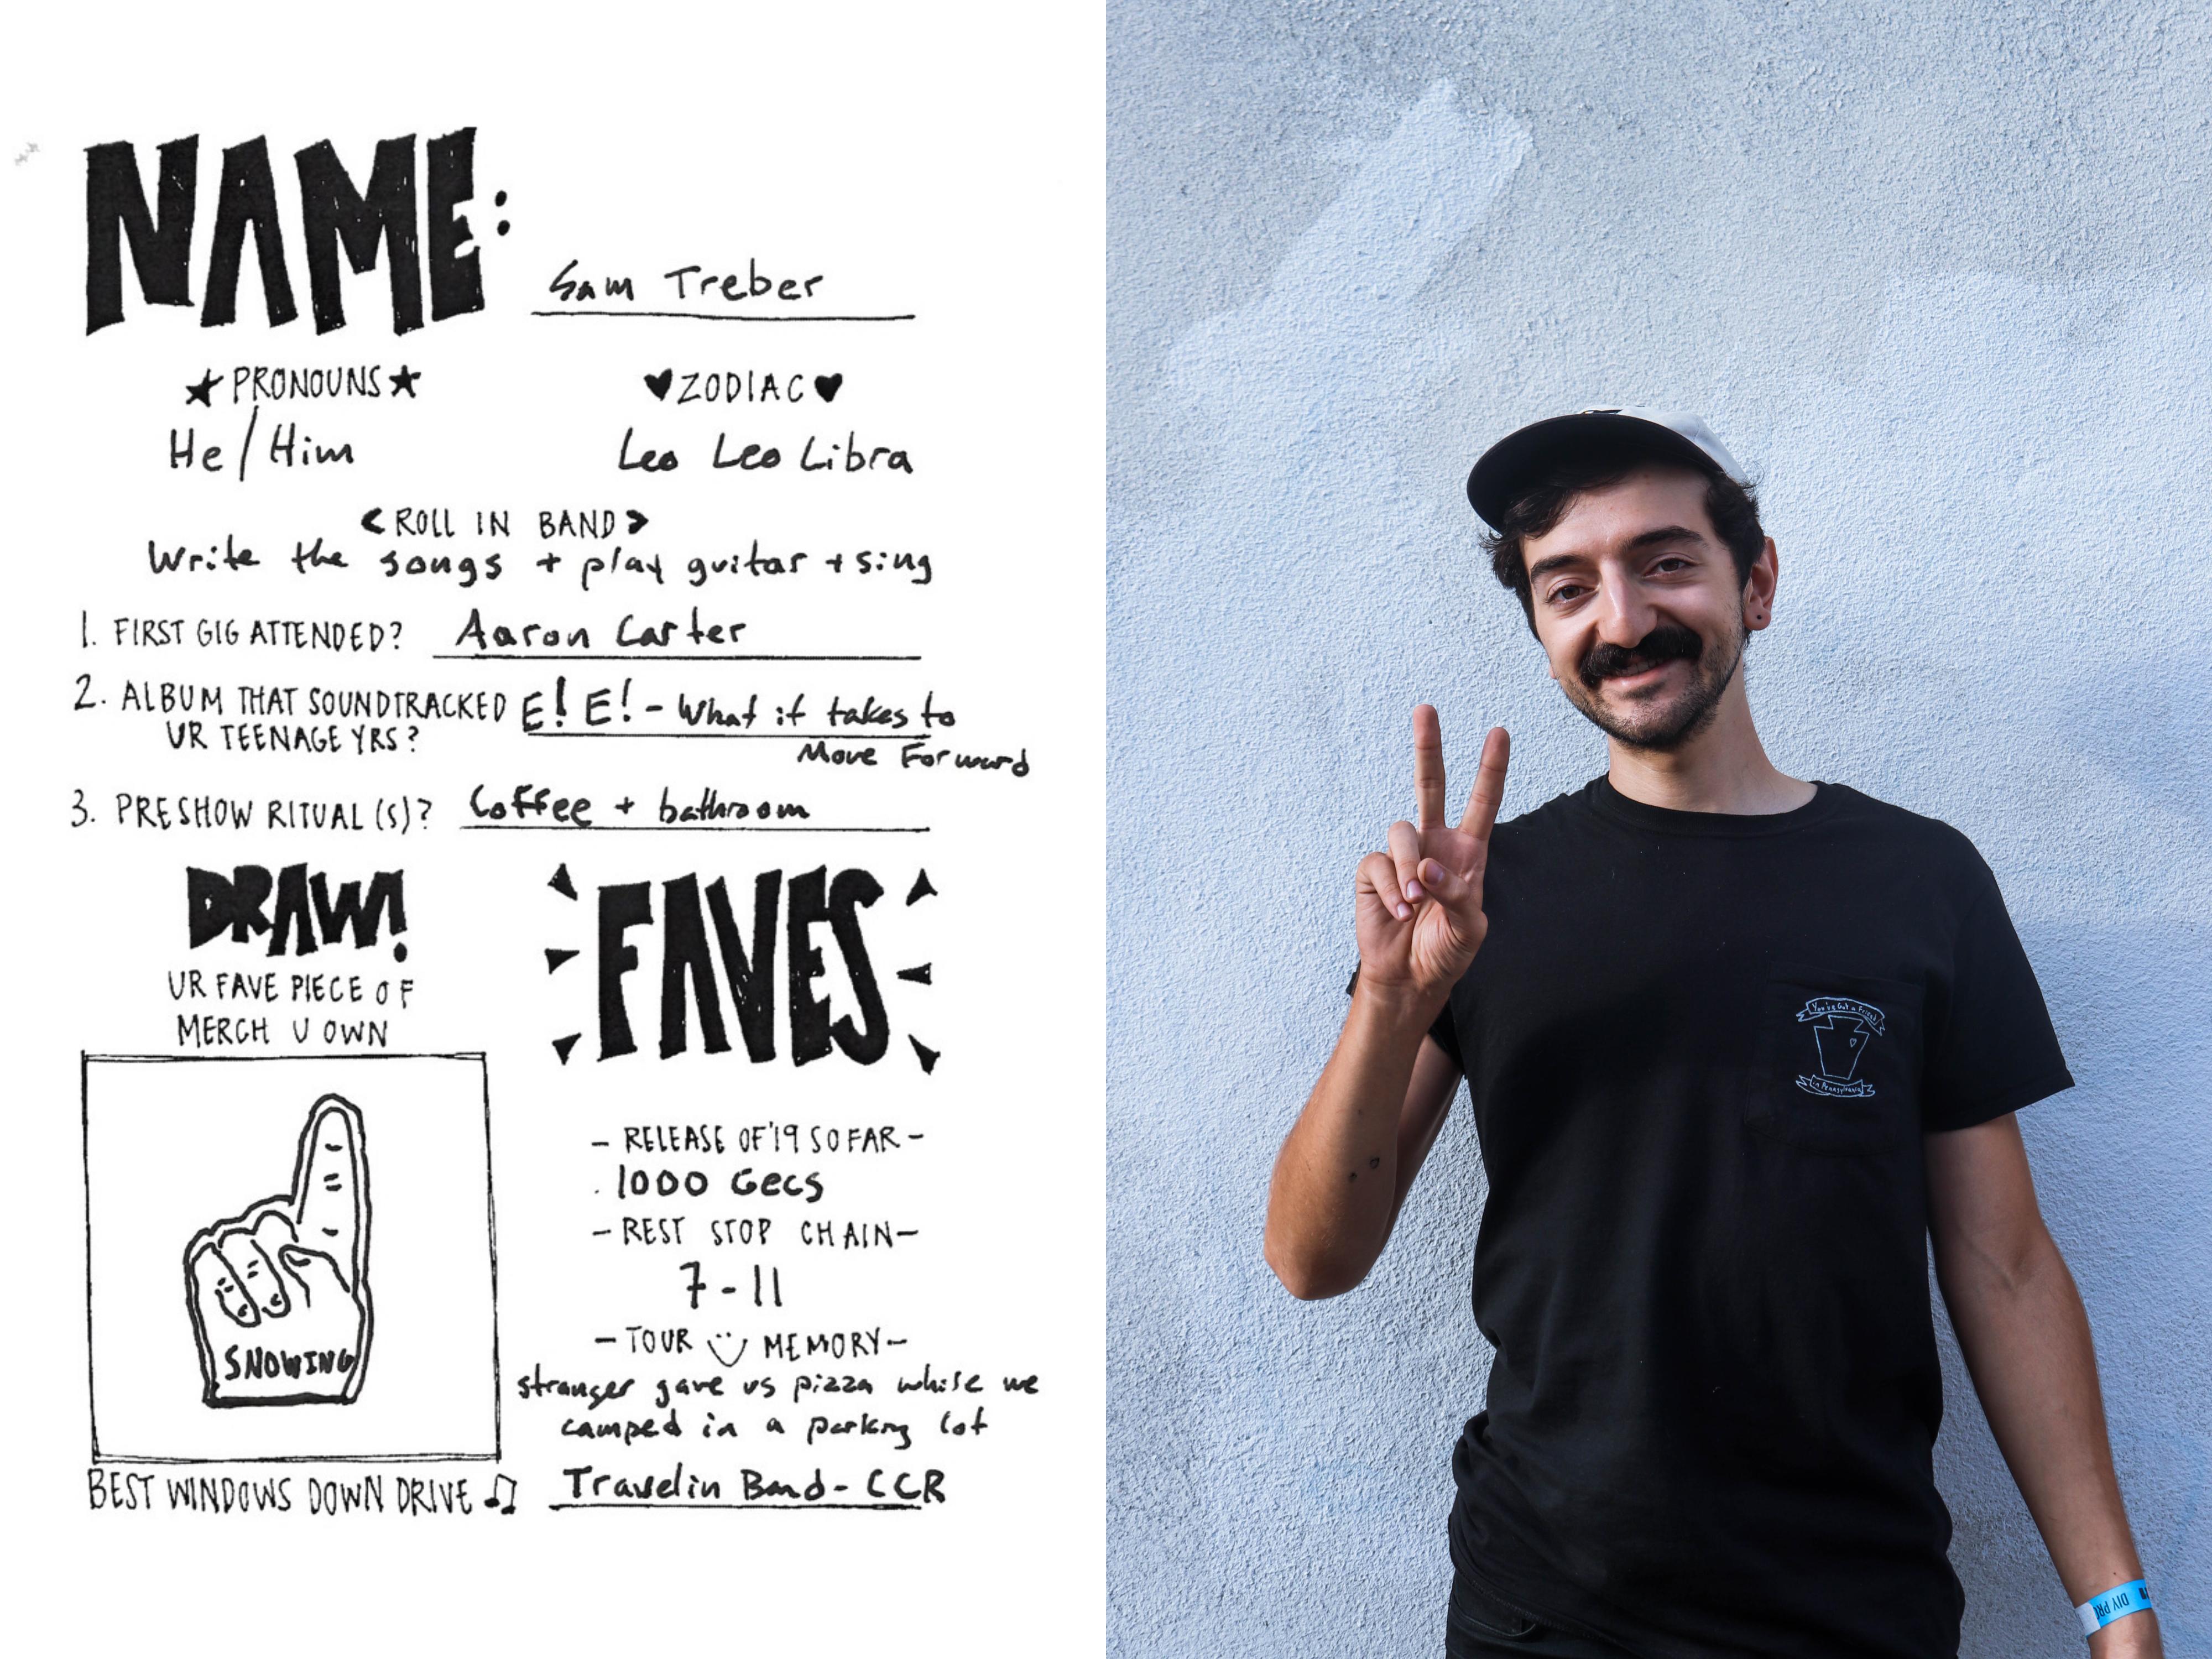 NAME:
Sam Treber
PRONOUNS
ZODIAC
He/Him
Leo Leo Libra
<ROLL IN BAND>
Write the songs + play guitar + sing
1. FIRST GIG ATTENDED? Aaron Carter
2. ALBUM THAT SOUNDTRACKED UR TEENAGE YRS?
E! E! - What it takes to
Move Forward
3. PRESHOW RITUAL(S)? Coffee + bathroom
DRAW!
UR FAVE PIECE OF
MERCH U OWN
SNOWING
FAVES
- RELEASE OF '19 SO FAR -
1000 Gecs
- REST STOP CHAIN -
7-11
- TOUR MEMORY -
stranger gave us pizza while we
camped in a parking lot
BEST WINDOWS DOWN DRIVE ♫ Travelin Band - CCR
You've Got a Friend
in Pennsylvania
DIY PR